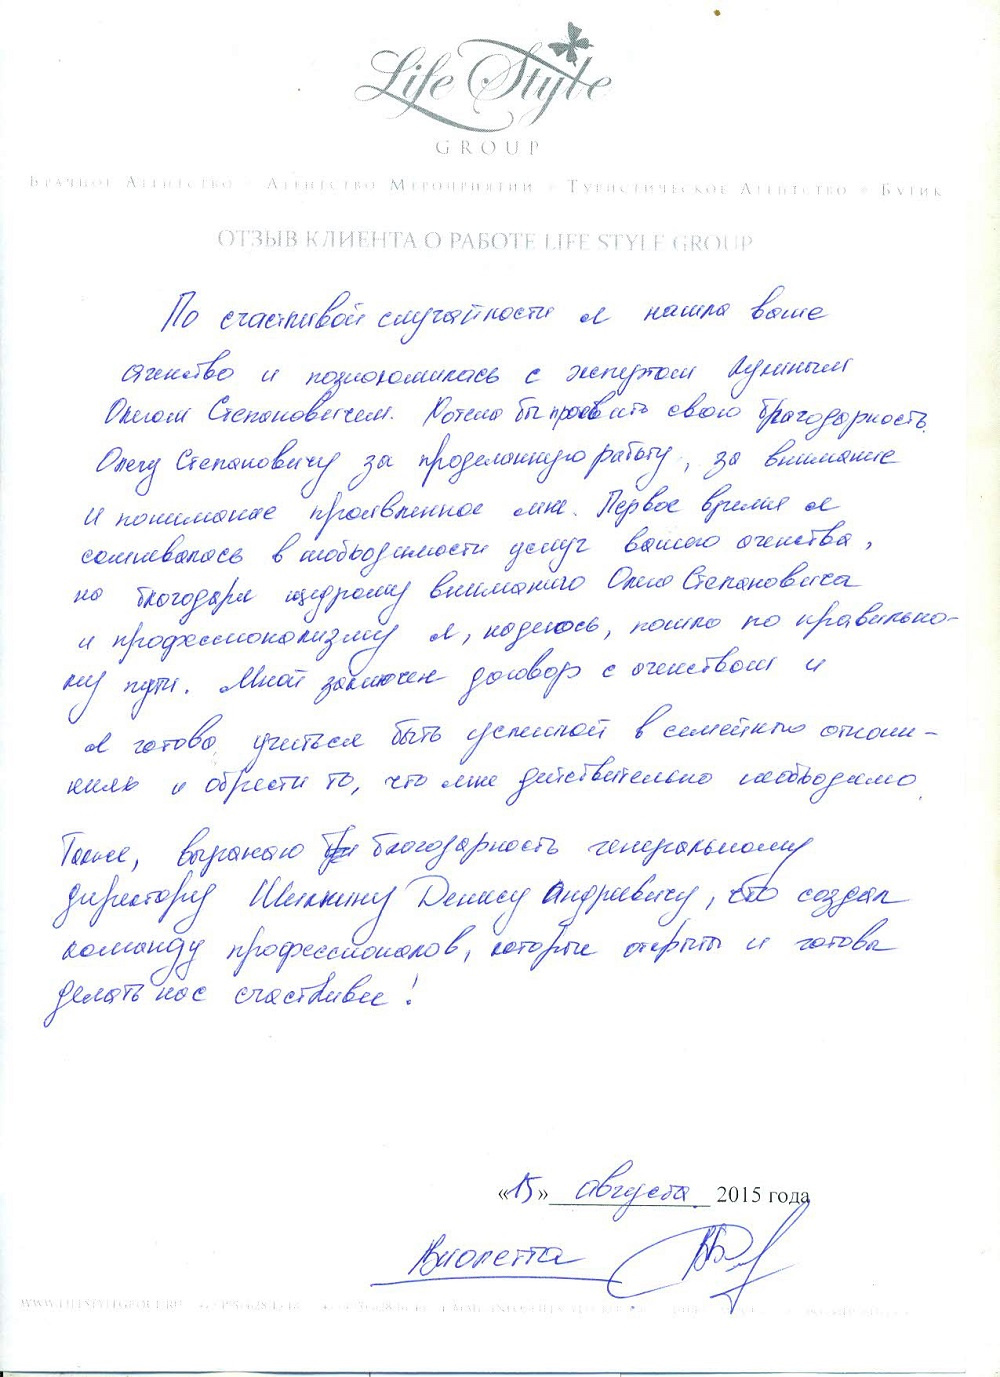 Life Style
GROUP
Брачное Агентство • Агентство Мероприятий • Туристическое Агентство • Бутик
ОТЗЫВ КЛИЕНТА О РАБОТЕ LIFE STYLE GROUP
По счастливой случайности я нашла ваше
агенство и познакомилась с экспертом
Олегом Степановичем. Хотела бы проявить свою благодарность
Олегу Степановичу за проделанную работу, за внимание
и понимание проявленное мне. Первое время я
сомневалась в необходимости услуг вашего агенства,
но благодаря щедрому вниманию Олега Степановича
и профессионализму я, надеюсь, пошла по правильно-
му пути. Мной заключен договор с агенством и
я готова учиться быть успешной в семейных отноше-
ниях и обрести то, что мне действительно необходимо.
Также, выражаю благодарность генеральному
директору Шилкину Денису Андреевичу, что создал
команду профессионалов, которые открыты и готовы
делать нас счастливее!
«15» августа 2015 года
Виолетта